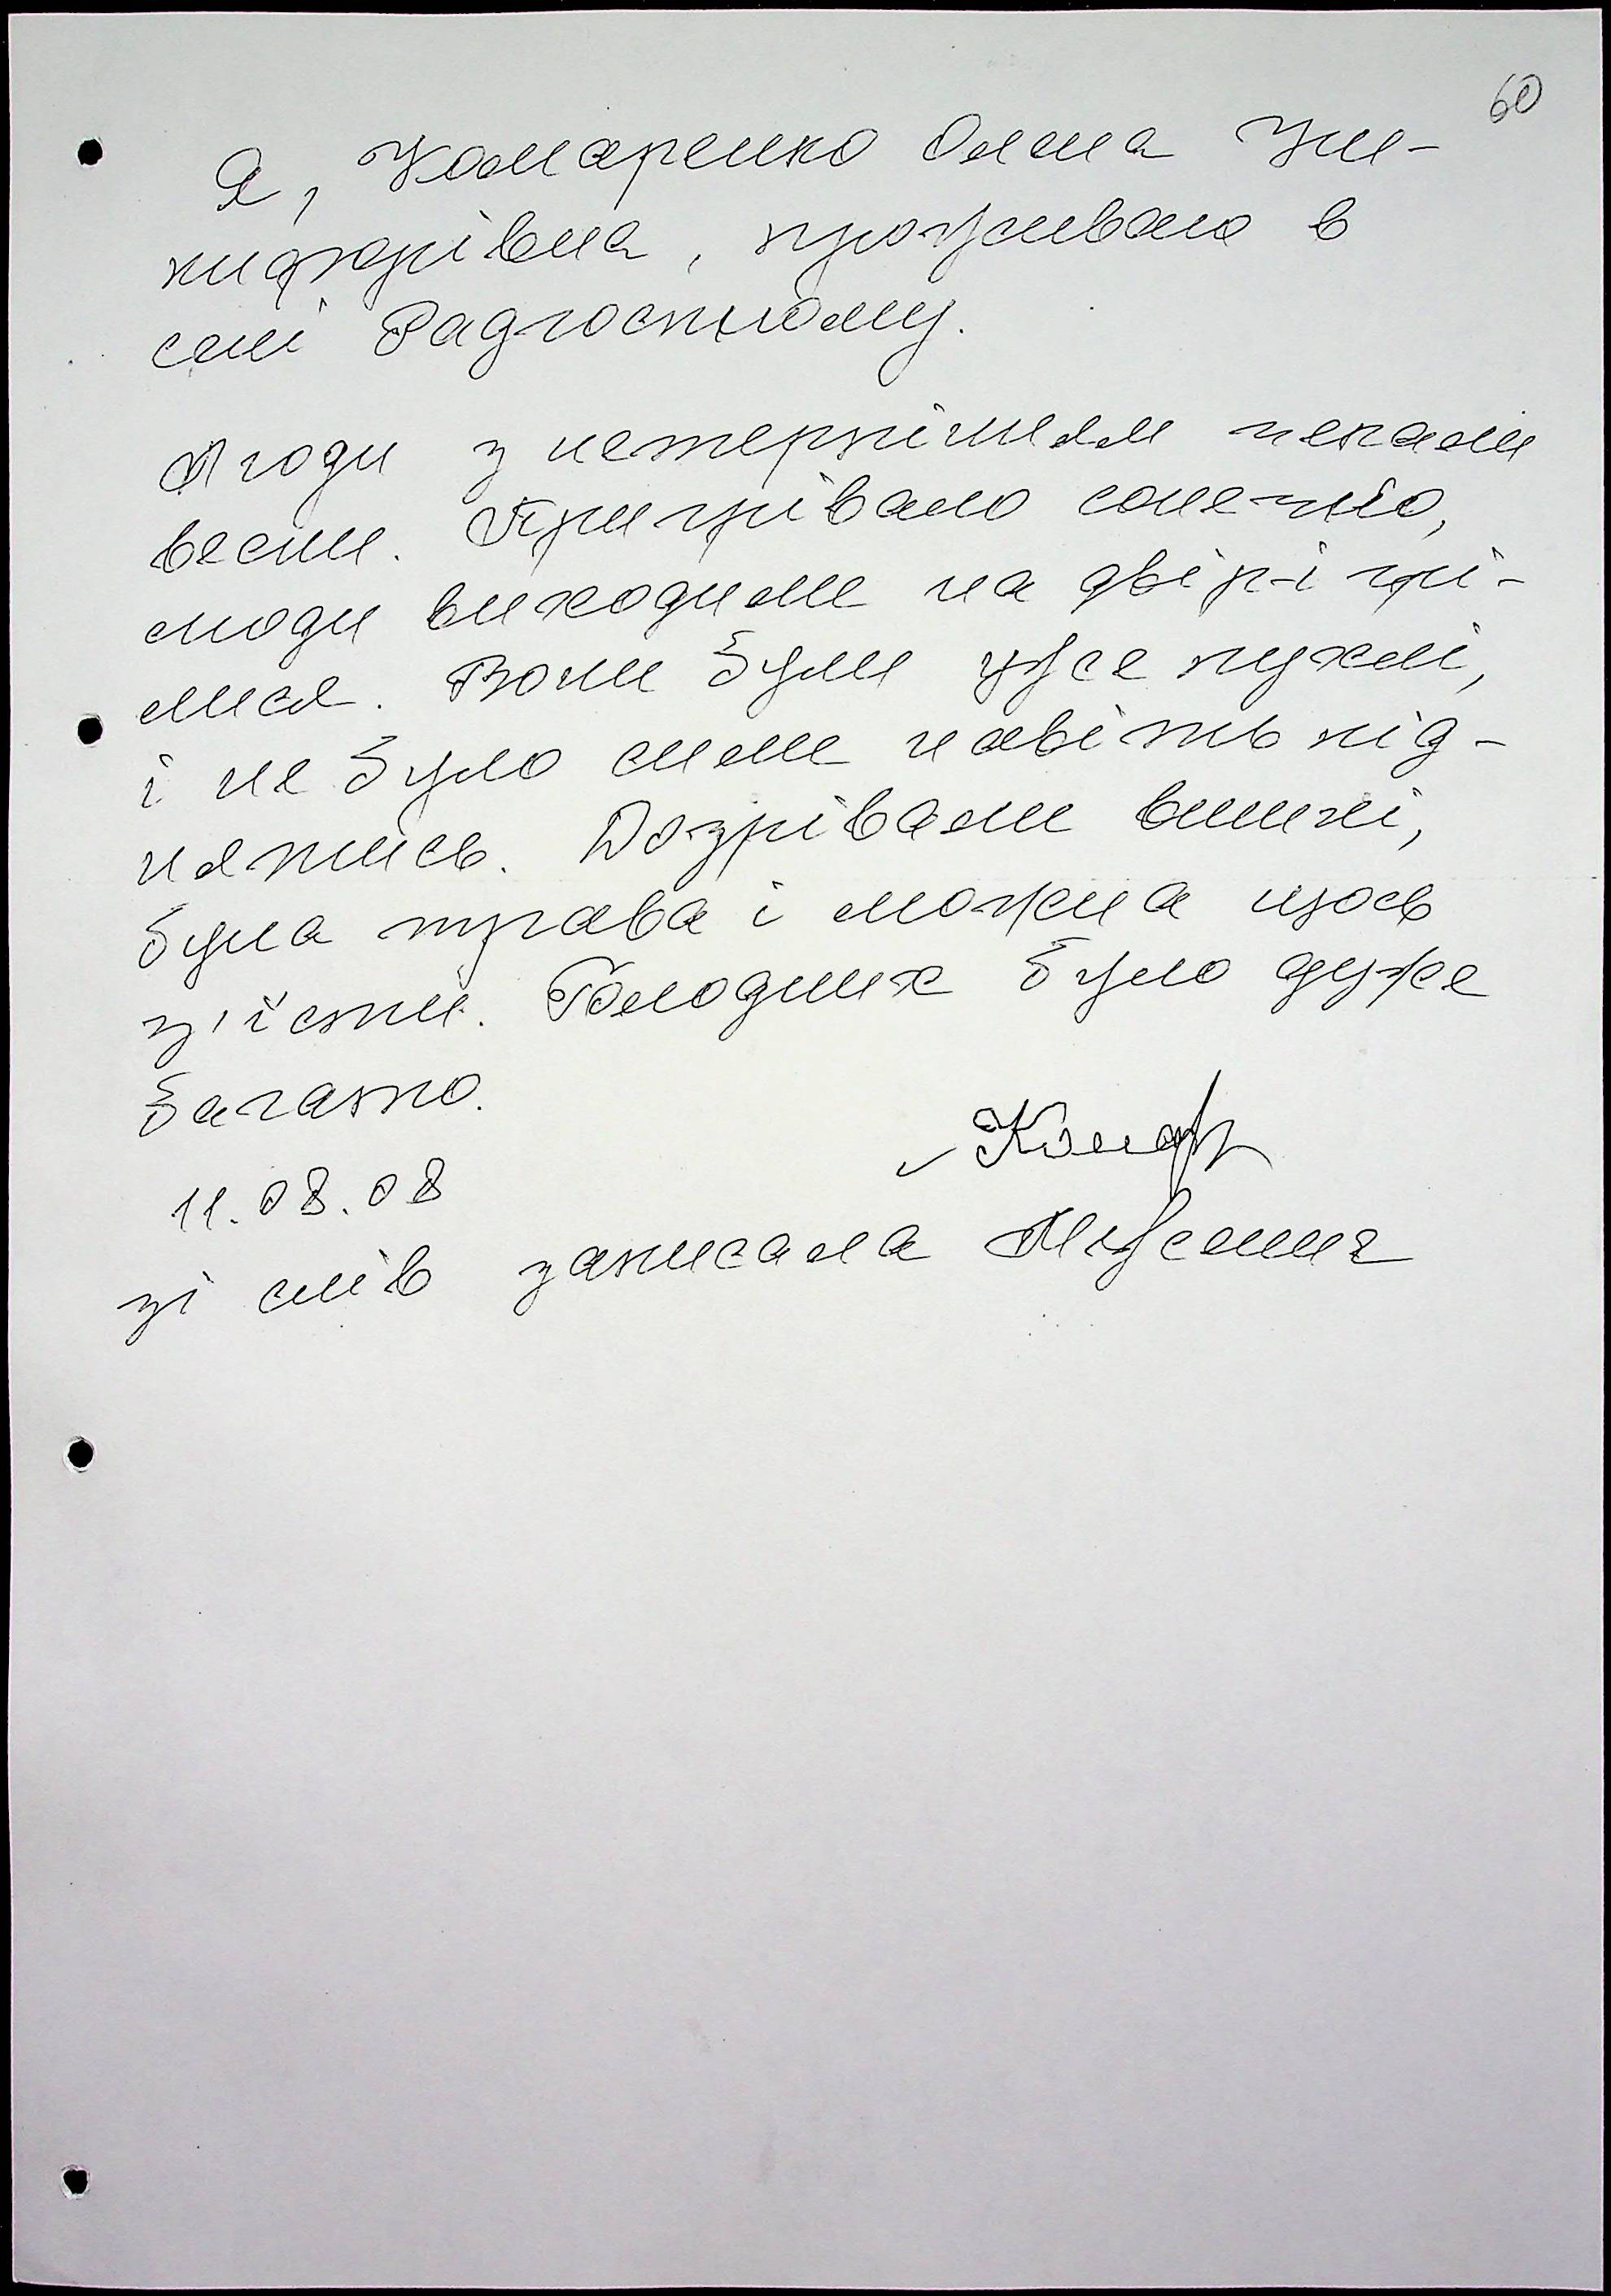 60
Я, Комаренко Олена Ни-
кифорівна, проживаю в
селі Радгоспному.
Люди з нетерпінням чекали
весни. Пригрівало сонечко,
люди виходили на двір і грі-
лися. Вони були уже пухлі,
і не було сили навіть під-
нятись. Дозрівали вишні,
була трава і можна щось
з'їсти. Голодних було дуже
багато.
Комар
11.08.08
зі слів записала